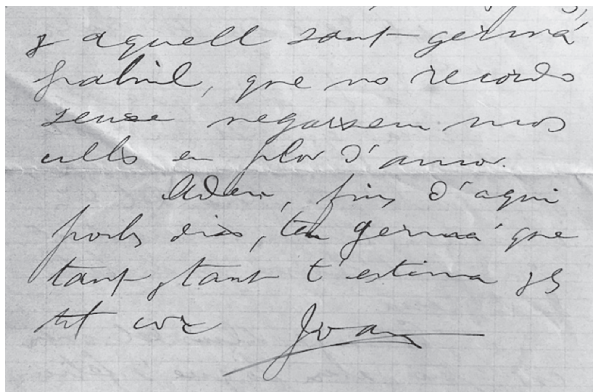 y aquell sant germá
Gabriel, que no recordo
sense negarsem mos
ulls en plor d'amor.
Adeu, fins d'aqui
pochs dias, ton germá que
tant, tant t'estima
tot cor Joan